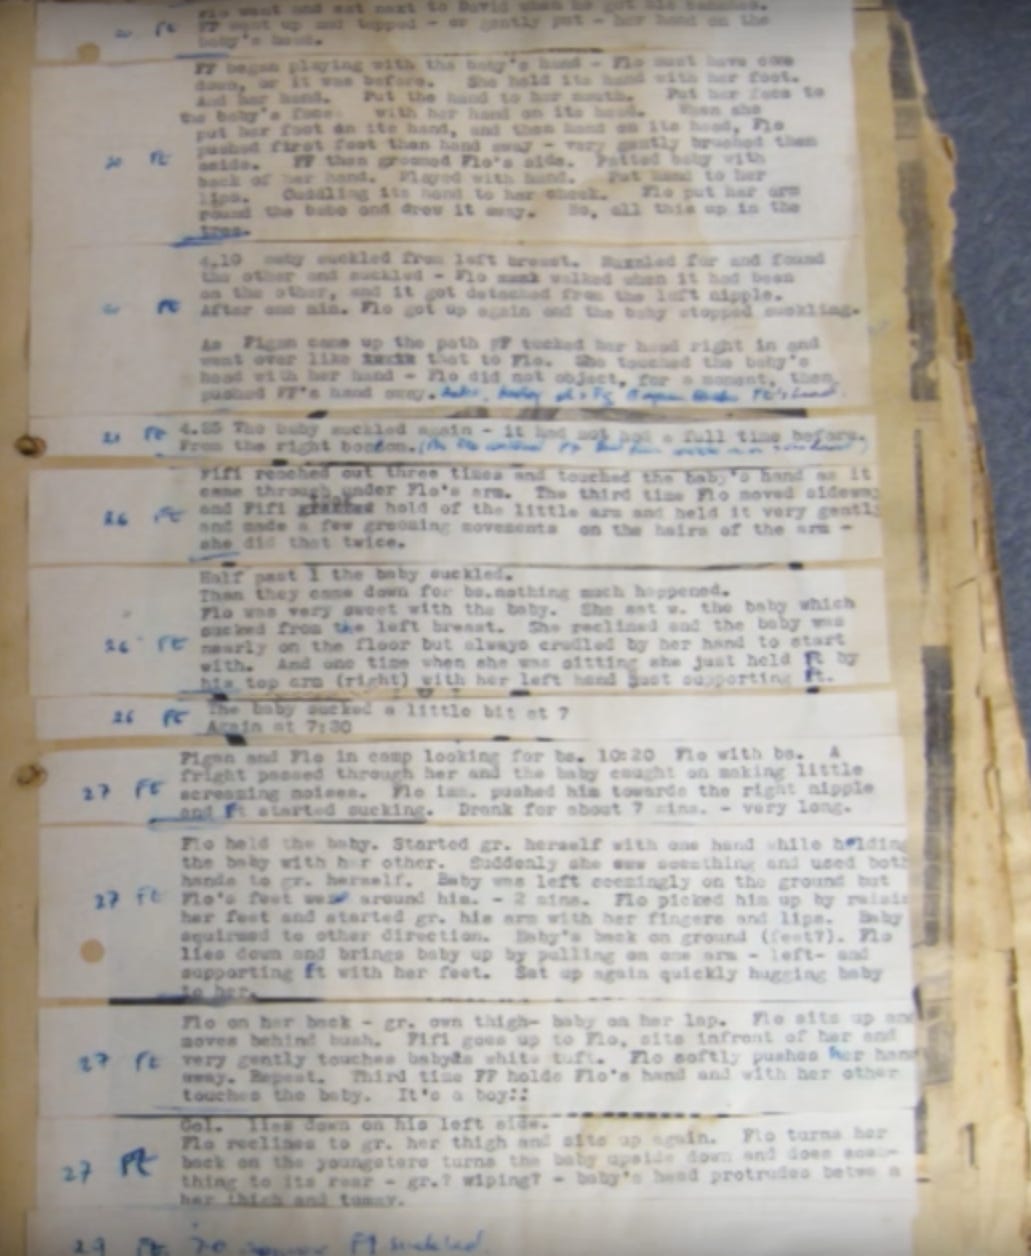 Flo went and sat next to David when he got his bananas.
20 Ft FF went up and tapped - or gently put - her hand on the
baby's head.
FF began playing with the baby's hand - Flo must have come
down, or it was before. She held its hand with her foot.
And her hand. Put the hand to her mouth. Put her face to
the baby's face with her hand on its head. When she
put her foot on its hand, and then hand on its head, Flo
pushed first foot then hand away - very gently brushed them
20 Ft aside. FF then groomed Flo's side. Patted baby with
back of her hand. Played with hand. Put hand to her
lips. Cuddling its hand to her cheek. Flo put her arm
round the babe and drew it away. No, all this up in the
tree.
4.10 baby suckled from left breast. Nuzzled for and found
the other and suckled - Flo walked when it had been
on the other, and it got detached from the left nipple.
Ft After one min. Flo got up again and the baby stopped suckling.
As Figan came up the path FF tucked her head right in and
went over like that to Flo. She touched the baby's
head with her hand - Flo did not object, for a moment, then
pushed FF's hand away.
21 Ft 4.25 The baby suckled again - it had not had a full time before.
From the right bosom.
Fifi reached out three times and touched the baby's hand as it
came through under Flo's arm. The third time Flo moved sideway
26 Ft and Fifi hold of the little arm and held it very gentl
and made a few grooming movements on the hairs of the arm -
she did that twice.
Half past 1 the baby suckled.
Then they came down for bs.nothing much happened.
Flo was very sweet with the baby. She sat w. the baby which
sucked from the left breast. She reclined and the baby was
26 Ft nearly on the floor but always cradled by her hand to start
with. And one time when she was sitting she just held Ft by
his top arm (right) with her left hand just supporting Ft.
26 Ft The baby sucked a little bit at 7
Again at 7:30
Figan and Flo in camp looking for bs. 10:20 Flo with bs. A
fright passed through her and the baby caught on making little
27 Ft screaming noises. Flo imm. pushed him towards the right nipple
and Ft started sucking. Drank for about 7 mins. - very long.
Flo held the baby. Started gr. herself with one hand while holding
the baby with her other. Suddenly she saw something and used both
hands to gr. herself. Baby was left seemingly on the ground but
27 Ft Flo's feet were around him. - 2 mins. Flo picked him up by raisin
her feet and started gr. his arm with her fingers and lips. Baby
squirmed to other direction. Baby's back on ground (feet?). Flo
lies down and brings baby up by pulling on one arm - left- and
supporting Ft with her feet. Sat up again quickly hugging baby
to her.
Flo on her back - gr. own thigh- baby on her lap. Flo sits up and
moves behind bush. Fifi goes up to Flo, sits infront of her and
27 Ft very gently touches babys white tuft. Flo softly pushes her hand
away. Repeat. Third time FF holds Flo's hand and with her other
touches the baby. It's a boy!!
Gol. lies down on his left side.
Flo reclines to gr. her thigh and sits up again. Flo turns her
27 Ft back on the youngsters turns the baby upside down and does some-
thing to its rear - gr.? wiping? - baby's head protrudes betwe n
her thigh and tummy.
29 Ft 7.0 Ft suckled.